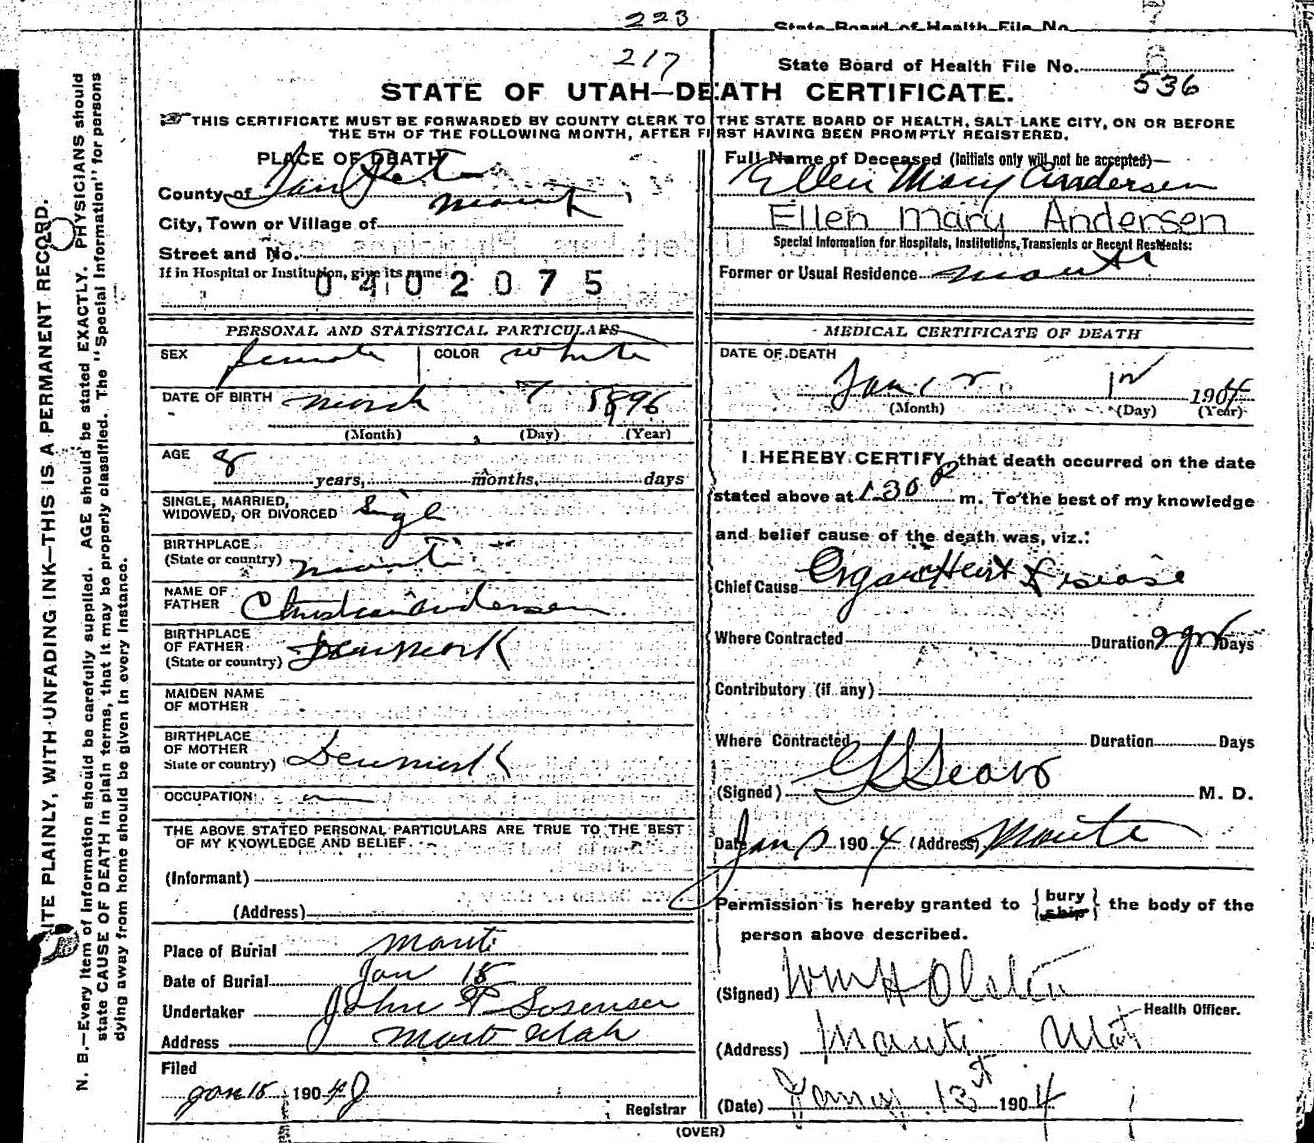 223
State Board of Health File No.
217
State Board of Health File No. 536
STATE OF UTAH—DEATH CERTIFICATE.
THIS CERTIFICATE MUST BE FORWARDED BY COUNTY CLERK TO THE STATE BOARD OF HEALTH, SALT LAKE CITY, ON OR BEFORE
THE 5TH OF THE FOLLOWING MONTH, AFTER FIRST HAVING BEEN PROMPTLY REGISTERED.
PLACE OF DEATH
County of San Pete
City, Town or Village of Manti
Street and No.
If in Hospital or Institution, give its name
0402075
PERSONAL AND STATISTICAL PARTICULARS
SEX female COLOR white
DATE OF BIRTH March 7 1896
(Month) (Day) (Year)
AGE 8
years, months, days
SINGLE, MARRIED,
WIDOWED, OR DIVORCED Sigle
BIRTHPLACE
(State or country) Manti
NAME OF
FATHER Christian Andersen
BIRTHPLACE
OF FATHER
(State or country) Denmark
MAIDEN NAME
OF MOTHER
BIRTHPLACE
OF MOTHER
State or country) Denmark
OCCUPATION
THE ABOVE STATED PERSONAL PARTICULARS ARE TRUE TO THE BEST
OF MY KNOWLEDGE AND BELIEF.
(Informant)
(Address)
Place of Burial Manti
Date of Burial Jan 15
Undertaker John P Sorensen
Address Manti Utah
Filed
Jan 15 1904
Registrar
Full Name of Deceased (Initials only will not be accepted)—
Ellen Mary Andersen
Ellen Mary Andersen
Special Information for Hospitals, Institutions, Transients or Recent Residents:
Former or Usual Residence Manti
MEDICAL CERTIFICATE OF DEATH
DATE OF DEATH
Jan 1904
(Month) (Day) (Year)
I HEREBY CERTIFY, that death occurred on the date
stated above at 1.30 P m. To the best of my knowledge
and belief cause of the death was, viz.:
Chief Cause Organic Heart Disease
Where Contracted Duration 2 yrs Days
Contributory (if any)
Where Contracted Duration Days
(Signed) M. D.
Date Jan 1904 (Address) Manti
Permission is hereby granted to {bury ship} the body of the
person above described.
(Signed) Wm H Olsten
Health Officer.
(Address) Manti Utah
(Date) 13 1904
(OVER)
WRITE PLAINLY, WITH UNFADING INK—THIS IS A PERMANENT RECORD.
N. B.—Every item of information should be carefully supplied. AGE should be stated EXACTLY. PHYSICIANS should
state CAUSE OF DEATH in plain terms, that it may be properly classified. The "Special Information" for persons
dying away from home should be given in every instance.